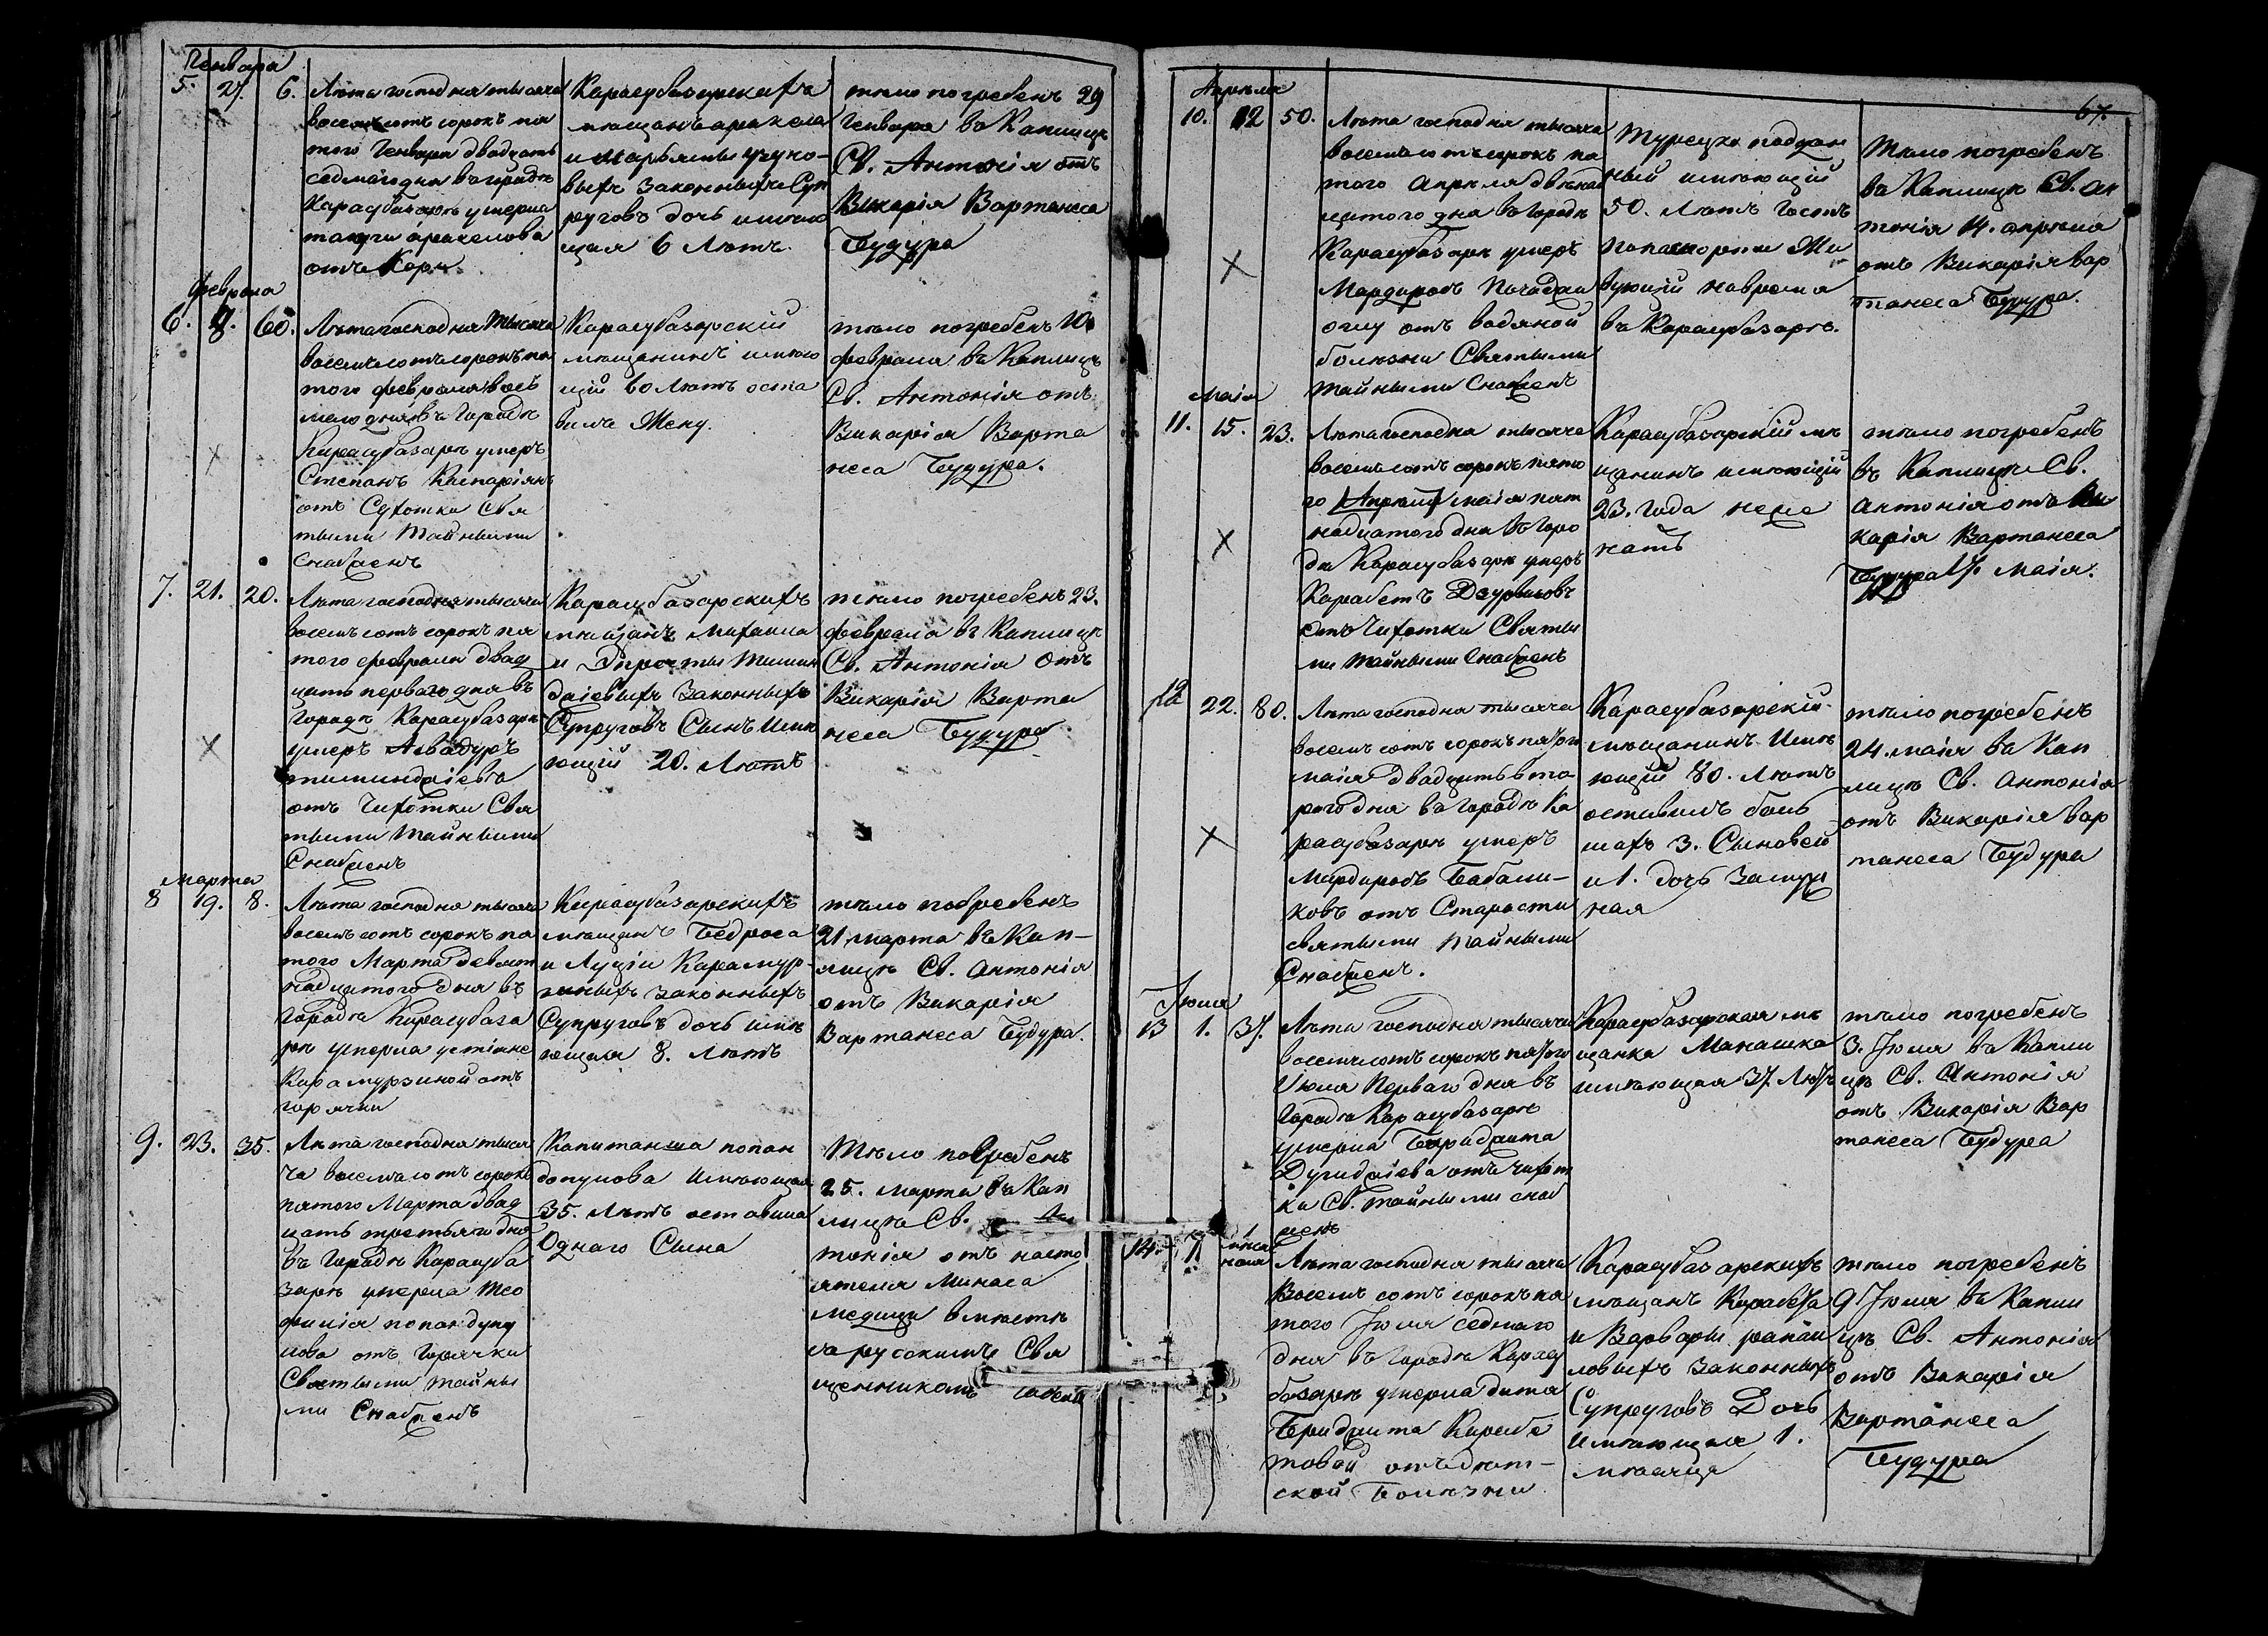 Генваря
5. 27. 6.
Лѣта господня тысяча
восемьсотъ сорокъ пя
того Генваря двадцать
седмаго дня въ городѣ
Карасубазарѣ умерла
аракелова
отъ Кори.
Карасубазарскихъ
мѣщанъ аракела
и Марьямы
выхъ законныхъ Суп
руговъ дочь имѣю
щая 6 Лѣтъ.
тѣло погребенъ 29
Генваря въ Каплицѣ
Св. Антонія отъ
Викарія Вартанеса
Будура
Февраля
6. 8. 60.
Лѣта господня тысяча
восемьсотъ сорокъ пя
того февраля вось
маго дня въ Городѣ
Карасубазарѣ умеръ
Степанъ Каспаріянъ
отъ Сухотки Свя
тыми Тайными
Снабденъ
Карасубазарскій
мѣщанинъ имѣю
щій 60 Лѣтъ оста
вилъ Жену.
тѣло погребенъ 10
февраля въ Каплицѣ
Св. Антонія отъ
Викарія Варта
неса Будура.
7. 21. 20.
Лѣта господня тысяча
восемьсотъ сорокъ пя
того февраля двад
цать перваго дня въ
городѣ Карасубазарѣ
умеръ Авадуръ
отъ Чихотки Свя
тыми Тайными
Снабденъ
Карасубазарскихъ
мѣщанъ Михаила
и
законныхъ
Супруговъ Сынъ Имѣ
ющій 20. Лѣтъ
тѣло погребенъ 23.
февраля въ Каплицѣ
Св. Антонія Отъ
Викарія Варта
неса Будура
Марта
8 19. 8.
Лѣта господня тысяча
восемьсотъ сорокъ пя
того Марта девят
надцатого дня въ
Городѣ Карасубаза
рѣ умерла устіане
Карамурзиной отъ
горячки
Карасубазарскихъ
мѣщанъ Бедроса
и Луціи Карамур
зиныхъ законныхъ
Супруговъ дочь имѣ
ющая 8. Лѣтъ
тѣло погребенъ
21 марта въ Кап-
лицѣ Св. Антонія
отъ Викарія
Вартанеса Будура.
9. 23. 35.
Лѣта господня тыся
ча восемьсотъ сорокъ
пятого Марта двад
цать третьяго дня
въ Городѣ Карасуба
зарѣ умерла Тео
филія попандупу
лова отъ Горячки
Святыми тайны
ми Снабденъ
Капитанша попан
допулова Имѣющая
35. Лѣтъ оставила
Однаго Сына
Тѣло погребенъ
25. марта въ Кап
лицѣ Св. Ан
тонія отъ насто
ятеля Минаса
медици вмѣстѣ
съ русскимъ Свя
щенникомъ
67.
Апрѣля
10. 12 50.
Лѣта господня тысяча
восемьсотъ сорокъ пя
того Апрѣля двѣнад
цатого дня въ Городѣ
Карасубазарѣ умеръ
Мардиросъ
оглу отъ водяной
болѣзни Святыми
тайными Снабденъ
Турецко поддан
ный имѣющій
50. Лѣтъ Гость
по паспорту Жи
вущій на время
въ Карасубазарѣ.
Тѣло погребенъ
въ Каплицѣ Св. Ан
тонія 14. апрѣля
отъ Викарія Вар
танеса Будура.
Маія
11. 15. 23.
Лѣта господня тысяча
восемьсотъ сорокъ пято
го Апрѣля маія пят
надцатого дня въ Горо
дѣ Карасубазарѣ умеръ
Карабетъ
отъ Чихотки Святы
ми тайными Снабденъ
Карасубазарскій мѣ
щанинъ имѣющій
23. Года неже
натъ
тѣло погребенъ
въ Каплицѣ Св.
Антонія отъ Ви
карія Вартанеса
Будура 17. Маія.
12 22. 80.
Лѣта господня тысяча
восемьсотъ сорокъ пятого
маія двадцать вто
рого дня въ Городѣ Ка
расубазарѣ умеръ
Мардиросъ Бабали-
ковъ отъ Старости
святыми тайными
Снабденъ.
Карасубазарскій
мѣщанинъ Имѣ
ющій 80. Лѣтъ
оставилъ боль
шахъ 3. Сыновей
и 1. дочь замуж
ная
тѣло погребенъ
24. маія въ Кап
лицѣ Св. Антонія
отъ Викарія Вар
танеса Будура
Іюля
13 1. 37.
Лѣта господня тысяча
восемьсотъ сорокъ пятого
Июля Перваго дня въ
Городѣ Карасубазарѣ
умерла
отъ чихот
ки Св. Тайными снаб
денъ
Карасубазарская мѣ
щанка Манашка
имѣющая 37. Лѣтъ
тѣло погребенъ
3. Іюля въ Капли
цѣ Св. Антонія
отъ Викарія Вар
танеса Будура
14. 7. мѣся
Лѣта господня тысяча
Восемьсотъ сорокъ пя
того Іюля седмаго
дня въ Городѣ Карасу
базарѣ умерла дитя
Карабе
товой отъ дѣт-
ской Болѣзни
Карасубазарскихъ
мѣщанъ Карабета
и Варвары
законныхъ
Супруговъ Дочь
Имѣющая 1.
мѣсяца
тѣло погребенъ
9 Іюля въ Капли
цѣ Св. Антонія
отъ Викарія
Вартанеса
Будура